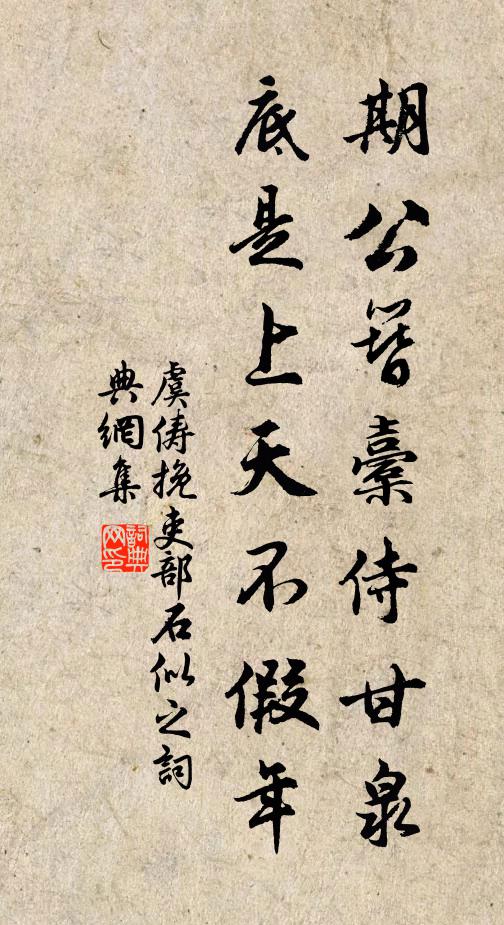 期公簪橐侍甘泉
底是上天不假年
虞俦挽吏部石似之詞
典網集
詞典网印